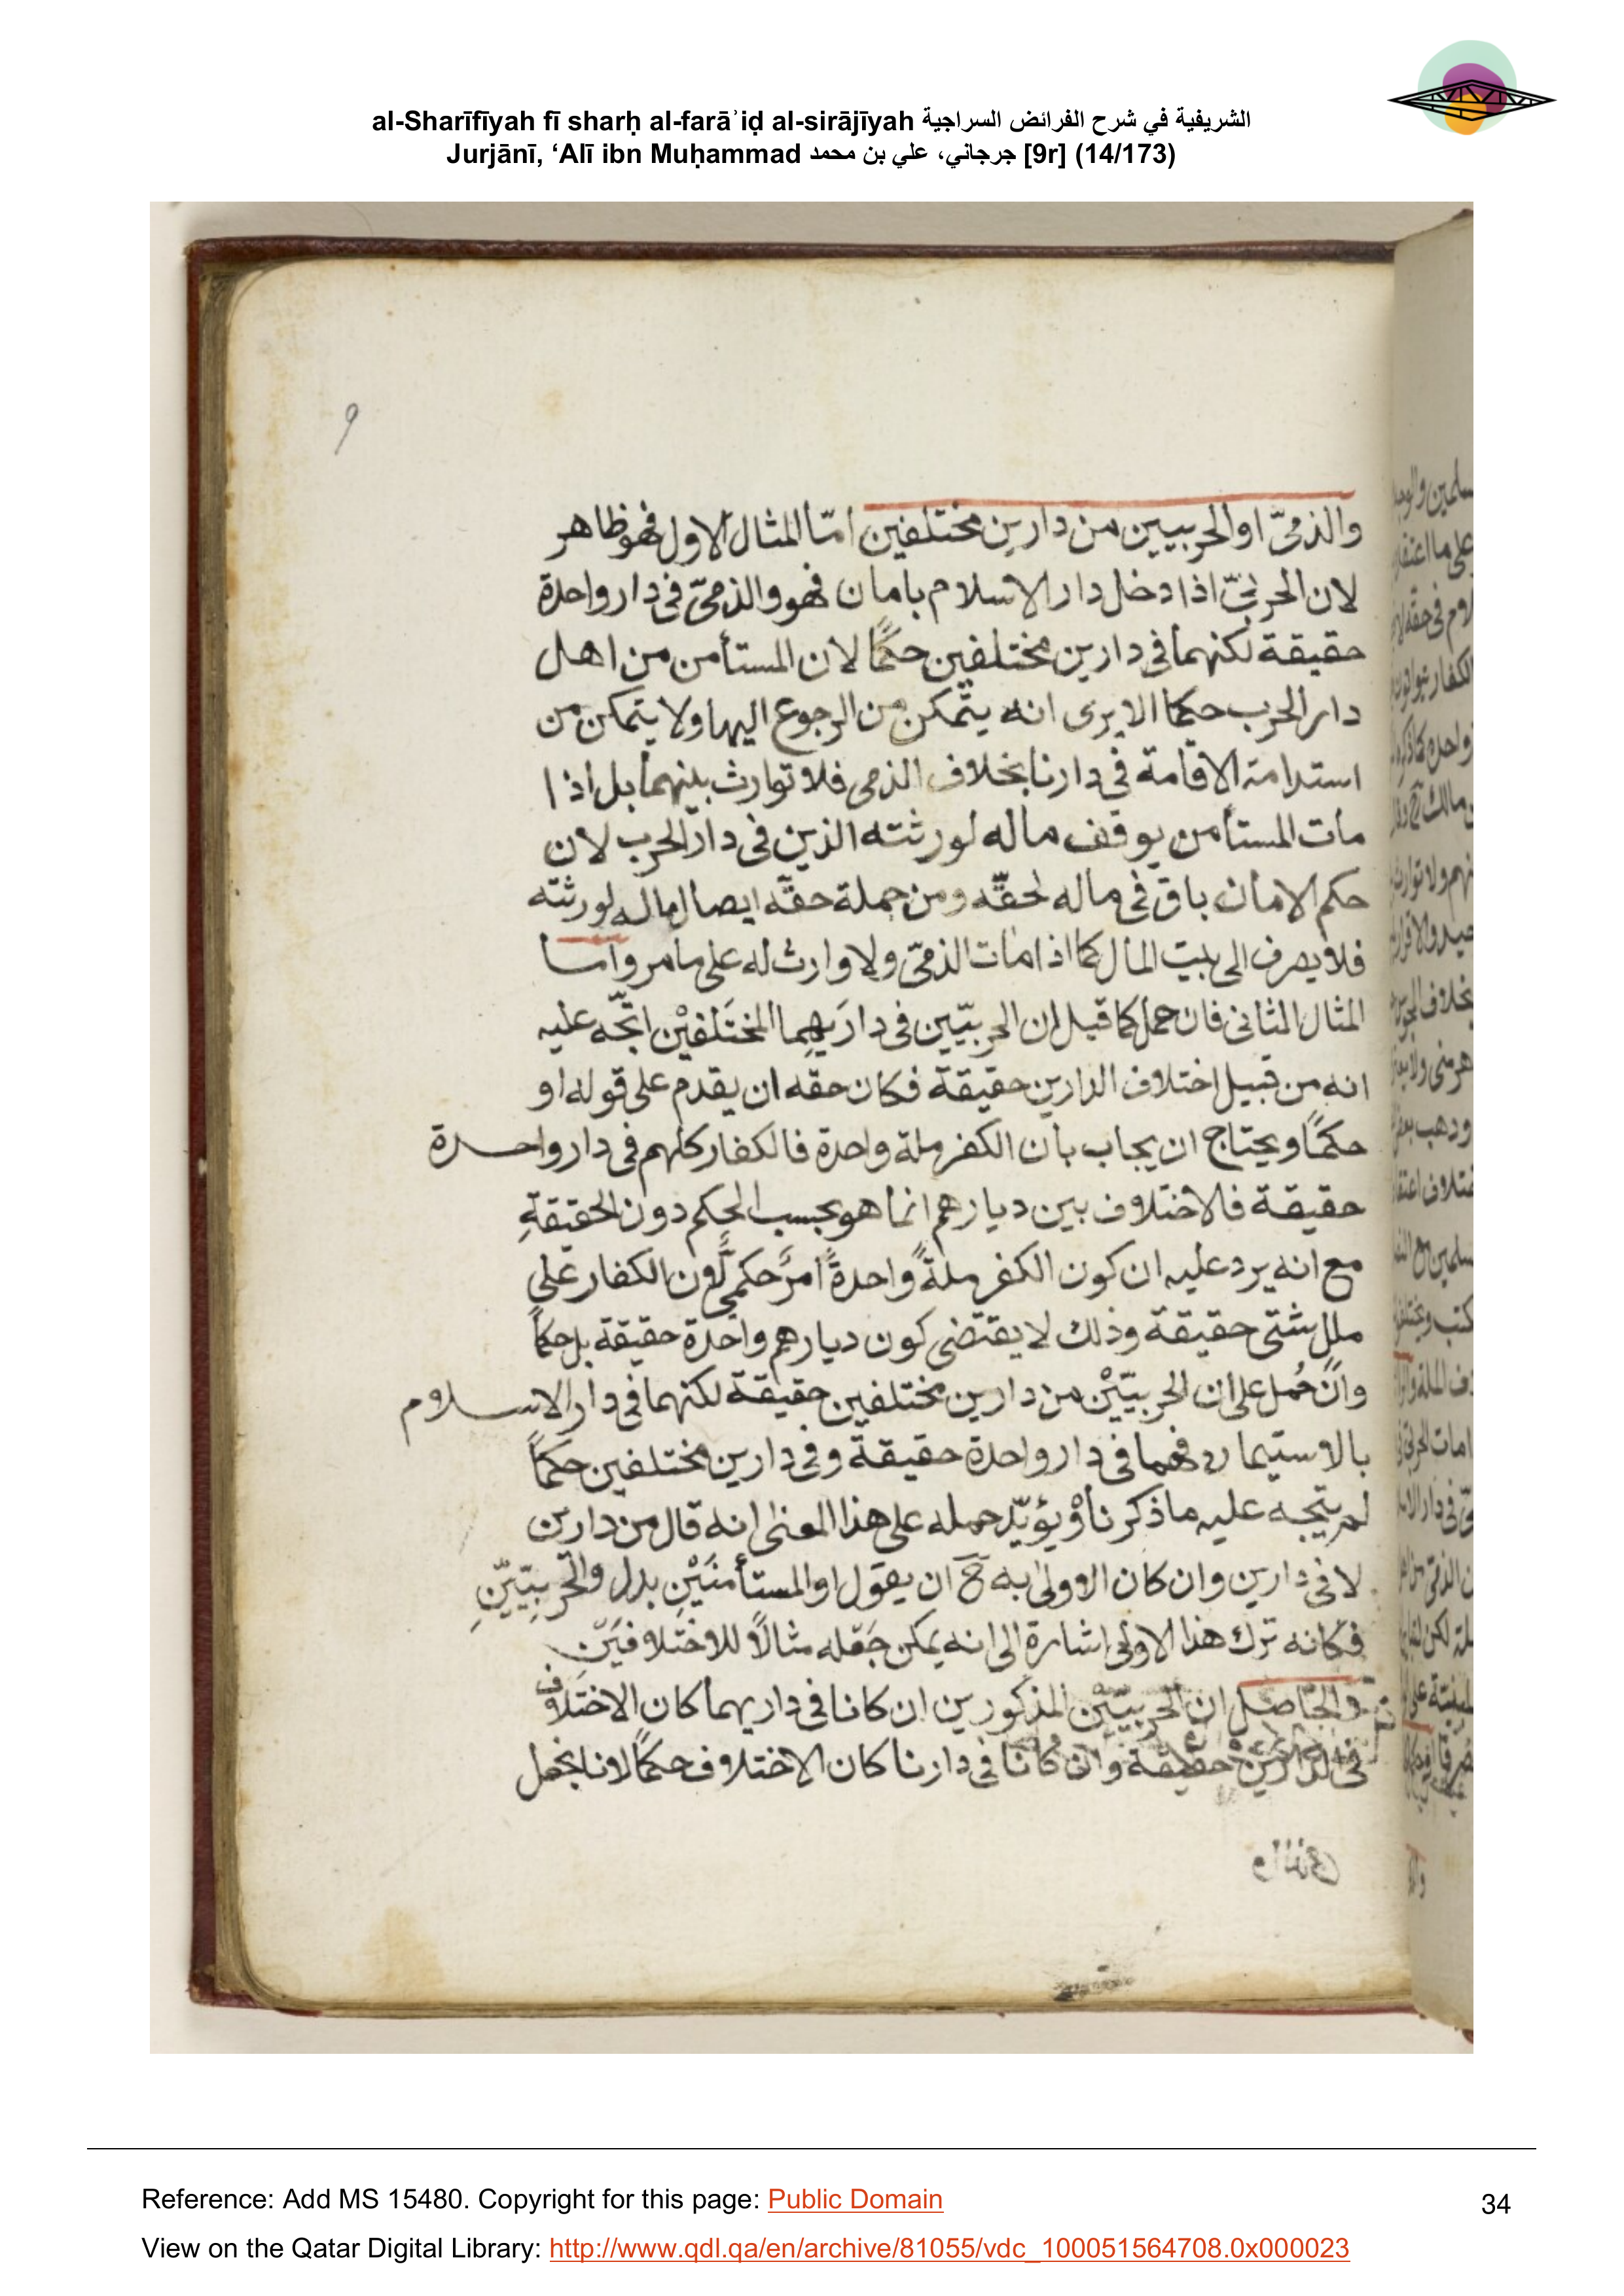 al-Sharīfīyah fī sharḥ al-farāʾiḍ al-sirājīyah الشريفية في شرح الفرائض السراجية
Jurjānī, ‘Alī ibn Muḥammad جرجاني، علي بن محمد [9r] (14/173)
9
والذمىّ او الحربيين من دارين مختلفين امّا المثال الاول فهو ظاهر
لان الحربىّ اذا دخل دار الاسلام بامان فهو والذمىّ فى دار واحدة
حقيقة لكنهما فى دارين مختلفين حكمًا لان المستأمن من اهل
دار الحرب حكما الا يرى انه يتمكن من الرجوع اليها ولا يتمكن من
استدامة الاقامة فى دارنا بخلاف الذمى فلا توارث بينهما بل اذا
مات المستأمن يوقف ماله لورثته الذين فى دار الحرب لان
حكم الامان باق فى ماله لحقّه ومن جملة حقّه ايصال ماله لورثته
فلا يصرف الى بيت المال كما اذا مات الذمىّ ولا وارث له على ما مر واما
المثال الثانى فان حمل كما قيل ان الحربيّين فى داريهما المختلفين اتّجه عليه
انه من قبيل اختلاف الدارين حقيقة فكان حقه ان يقدم على قوله او
حكمًا ويحتاج ان يجاب بان الكفر ملة واحدة فالكفار كلهم فى دار واحدة
حقيقة فالاختلاف بين ديارهم انما هو بحسب الحكم دون الحقيقةِ
مع انه يرد عليه ان كون الكفر ملةً واحدةً امرٌ حكمىٌّ لان الكفار على
ملل شتى حقيقة وذلك لا يقتضى كون ديارهم واحدة حقيقة بل حكمًا
وان حُمل على ان الحربيّيْن من دارين مختلفين حقيقة لكنهما فى دار الاسلام
بالاستيمان فهما فى دار واحدة حقيقة وفى دارين مختلفين حكمًا
لم يتجه عليه ما ذكرناه ويؤيّد حمله على هذا المعنى انه قال من دارين
لا فى دارين وان كان الاولى به ح ان يقول او المستأمنَيْنِ بدل والحربيّيْنِ
فكانه ترك هذا الاولى اشارة الى انه يمكن جَعْله مثالاً للاختلافَيْن
والحاصل ان الحربيّيْن المذكورين ان كانا فى داريهما كان الاختلاف
فى الدارين حقيقة وان كانا فى دارنا كان الاختلاف حكمًا لانا نجعل
Reference: Add MS 15480. Copyright for this page: Public Domain
34
View on the Qatar Digital Library: http://www.qdl.qa/en/archive/81055/vdc_100051564708.0x000023